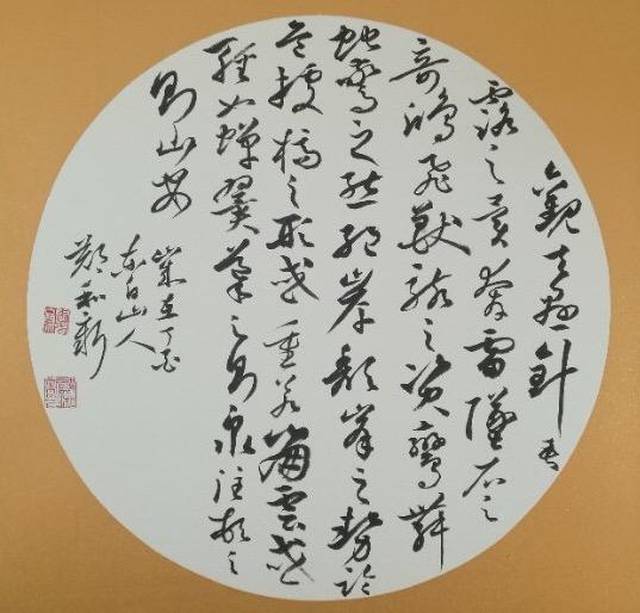 觀夫懸針垂
露之異奔雷墜石之
奇鴻飛獸駭之資鸞舞
蛇驚之態絕岸頹峰之勢臨
危據槁之形或重若崩雲或
輕如蟬翼導之則泉注頓之
則山安
歲在丁酉
東白山人
鄭和新